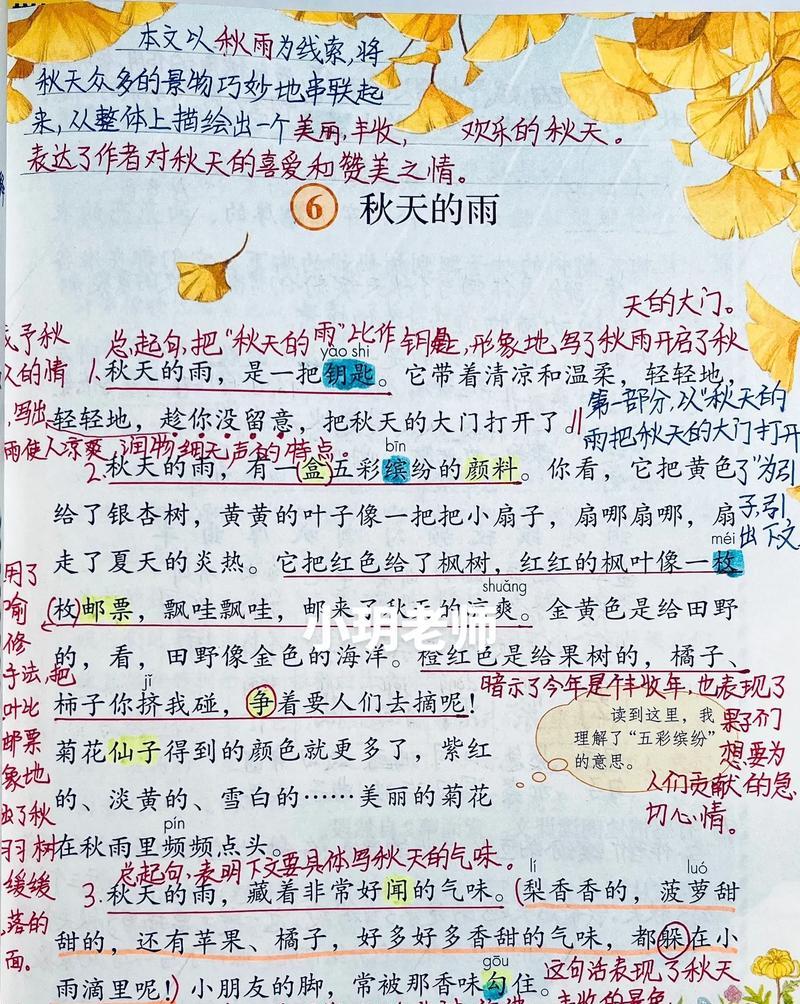 本文以秋雨为线索,将
秋天众多的景物巧妙地串联起
来,从整体上描绘出一个美丽,丰收, 欢乐的秋天。
表达了作者对秋天的喜爱和赞美之情。
6 秋天的雨
天的大门。
总起句,把“秋天的雨”比作钥匙,形象地写了秋雨开启了秋
予秋
人的情
写出
雨使人凉爽、润物细无声的特点。
yào shi
1.秋天的雨,是一把钥匙。它带着清凉和温柔,轻轻地,
轻轻地,趁你没留意,把秋天的大门打开了。
第一部分,以“秋天的
雨把秋天的大门打开
了”为引
子,引
出下文
bīn
2.秋天的雨,有一盒五彩缤纷的颜料。你看,它把黄色
给了银杏树,黄黄的叶子像一把把小扇子,扇哪扇哪,扇
méi
走了夏天的炎热。它把红色给了枫树,红红的枫叶像一枚
shuǎng
(枚)邮票,飘哇飘哇,邮来了秋天的凉爽。金黄色是给田野
小玥老师
的,看,田野像金色的海洋。橙红色是给果树的,橘子、
jǐ
柿子你挤我碰,争着要人们去摘呢!
菊花仙子得到的颜色就更多了,紫红
的、淡黄的、雪白的……美丽的菊花
pín
在秋雨里频频点头。
用了
喻
修
手法,把
叶比
邮票
象地
了秋
羽树
缓缓
落的
面。
暗示了今年是个丰收年,也表现了
果子们
想要为
人们贡献的急
切心情。
读到这里,我
理解了“五彩缤纷”
的意思。
总起句、表明下文要具体写秋天的气味。
lí luó
3.秋天的雨,藏着非常好闻的气味。(梨香香的,菠萝甜
甜的,还有苹果、橘子,好多好多香甜的气味,都躲在小
gōu
雨滴里呢!)小朋友的脚,常被那香味勾住。
这句话表现了秋天
丰收的景象